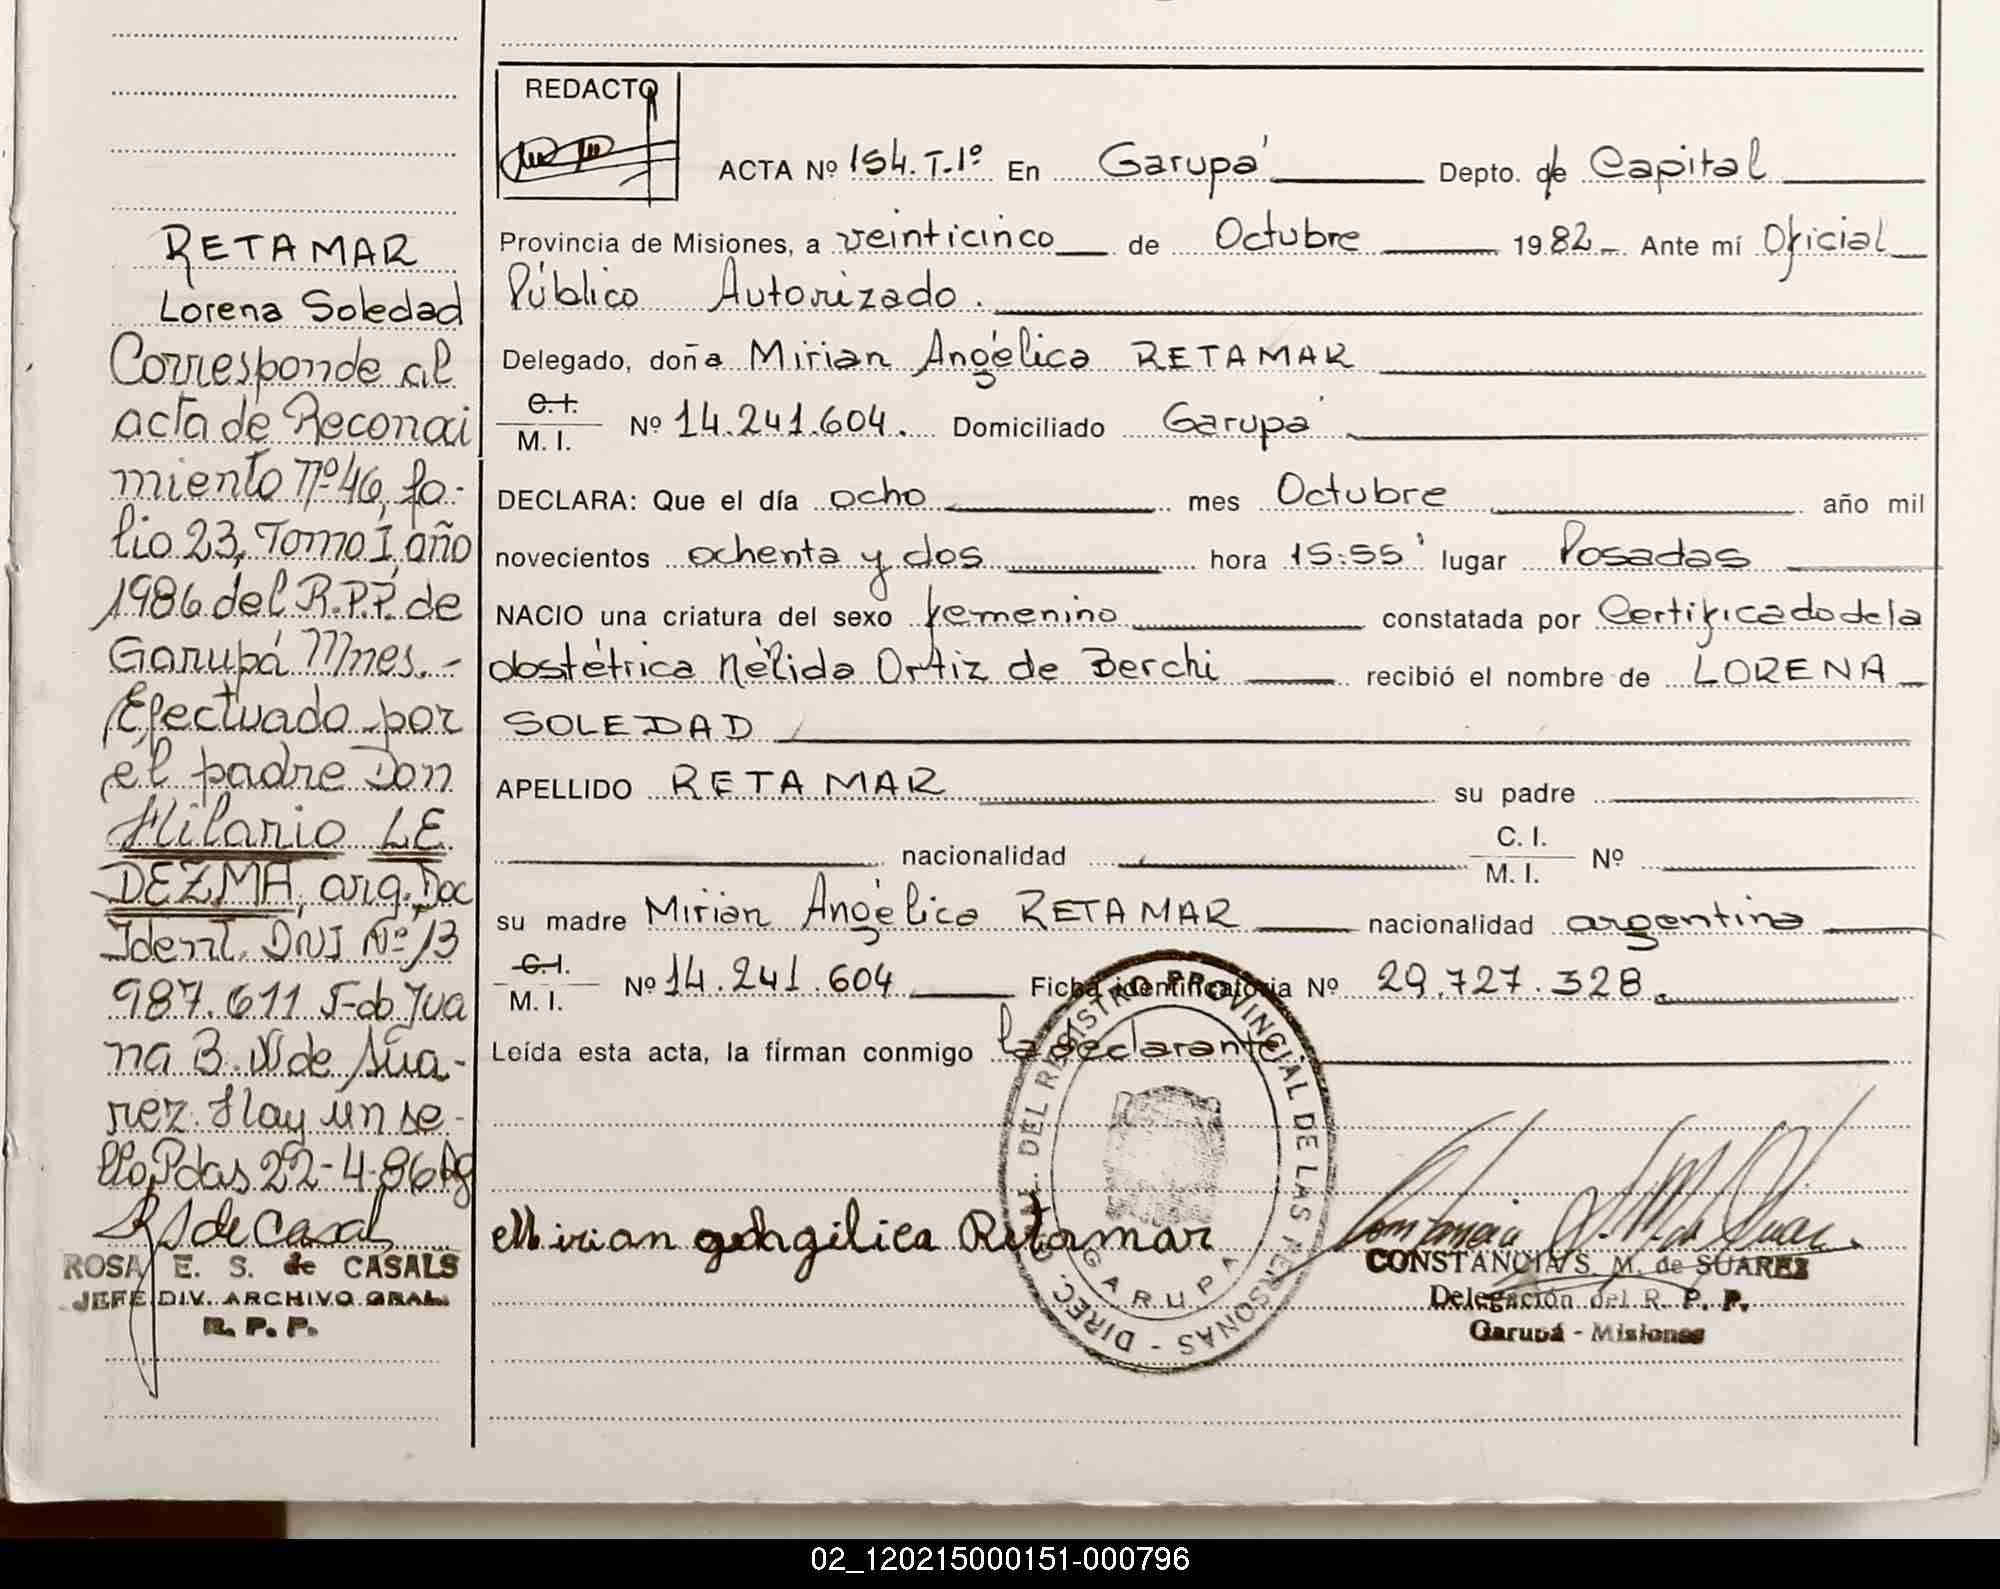 RETAMAR
Lorena Soledad
Corresponde al
acta de Reconoci
miento Nº 46, fo-
lio 23, Tomo I, año
1986 del R.P.P. de
Garupá Mnes.-
Efectuado por
el padre Don
Hilario LE
DEZMA, arg. Doc
Ident. DNI Nº 13
987.611 F-do Jua
na B. N de Sua-
rez. Hay un se-
llo Pdas 22-4-86
R S de Casals
ROSA E. S. de CASALS
JEFE DIV. ARCHIVO GRAL.
R. P. P.
REDACTO
ACTA Nº 154. T.Iº En Garupá Depto. de Capital
Provincia de Misiones, a veinticinco de Octubre 1982 Ante mí Oficial
Público Autorizado.
Delegado, doña Mirian Angélica RETAMAR
C.I.
M. I. Nº 14.241.604. Domiciliado Garupá
DECLARA: Que el día ocho mes Octubre año mil
novecientos ochenta y dos hora 15:55' lugar Posadas
NACIO una criatura del sexo femenino constatada por Certificado de la
obstétrica Nélida Ortiz de Berchi recibió el nombre de LORENA
SOLEDAD
APELLIDO RETAMAR su padre
nacionalidad C. I.
M. I. Nº
su madre Mirian Angélica RETAMAR nacionalidad argentina
C.I.
M. I. Nº 14.241.604 Ficha identificatoria Nº 29.727.328.
Leída esta acta, la firman conmigo la declarante
DIREC. GRAL. DEL REGISTRO PROVINCIAL DE LAS PERSONAS -
GARUPA
Mirian Angilica Retamar
CONSTANCIA S. M. de SUAREZ
Delegación del R. P. P.
Garupá - Misiones
02_120215000151-000796